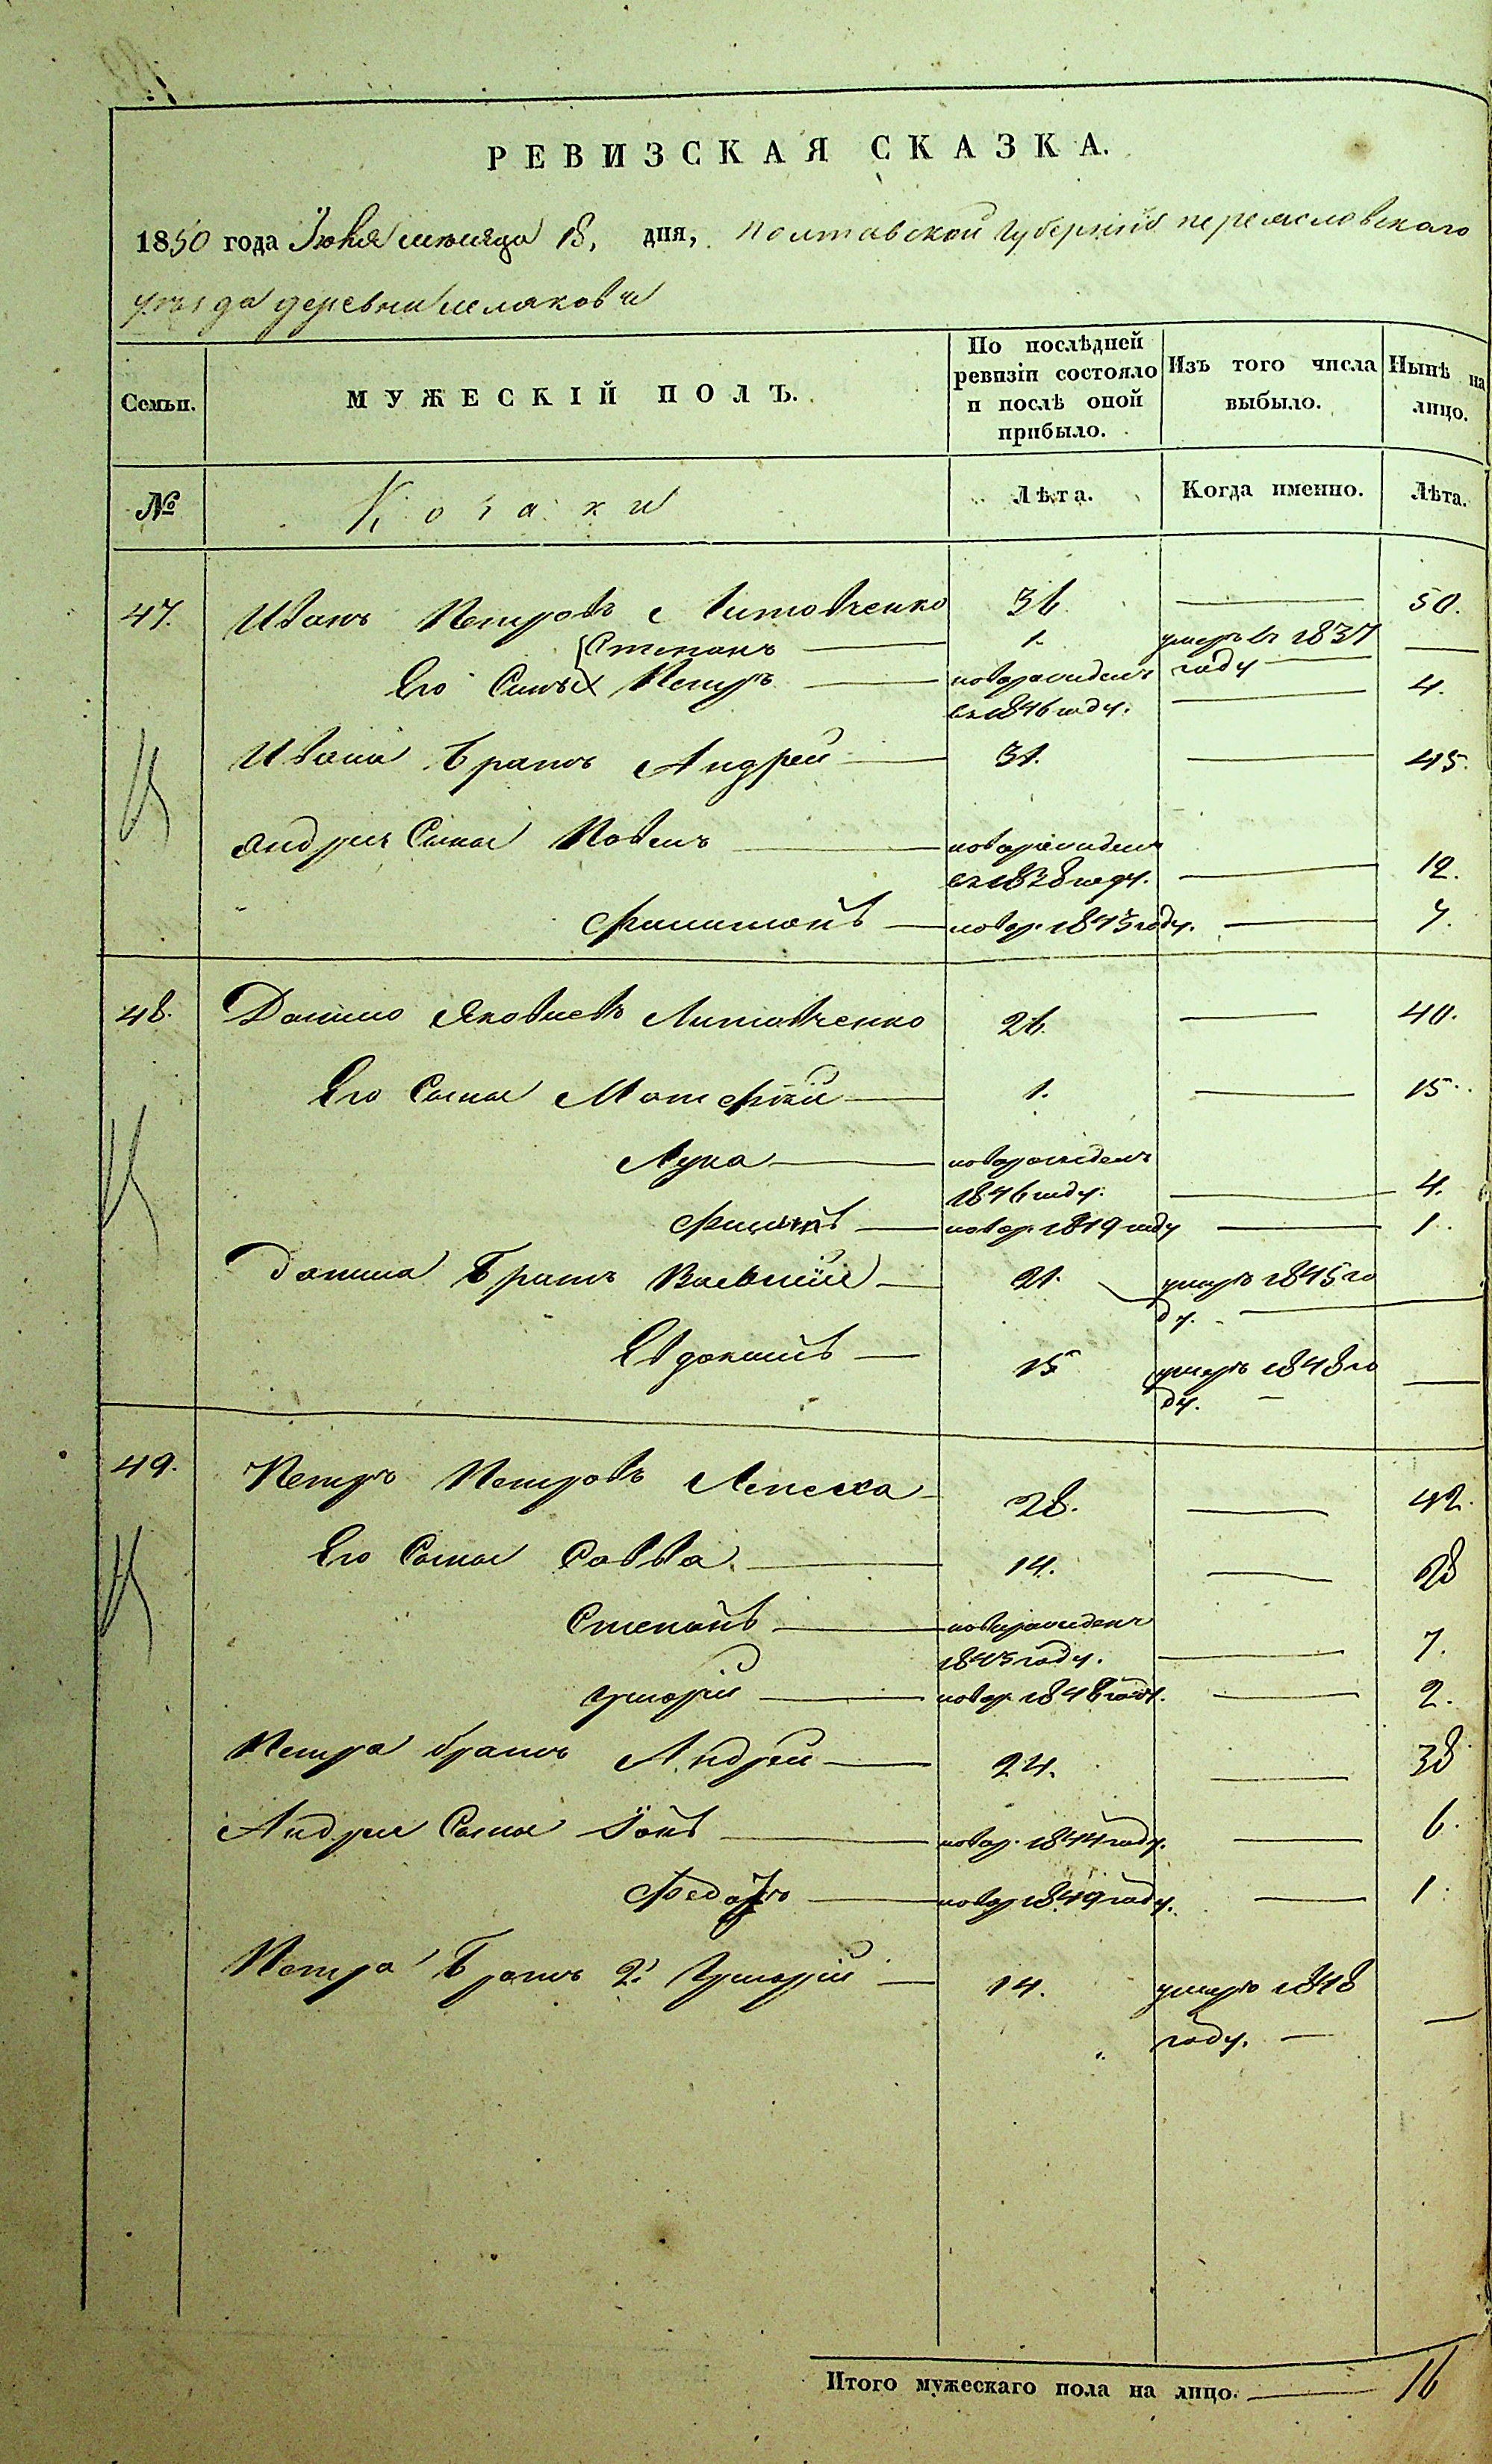 РЕВИЗСКАЯ СКАЗКА.
1850 года Іюня месяца 18, дня, Полтавской Губерніи переяславскаго
уѣзда деревни
По послѣдней ревизіи состояло и послѣ оной прибыло.
Изъ того числа выбыло.
Нынѣ на лицо.
Семьи.
МУЖЕСКІЙ ПОЛЪ.
№ Козаки Лѣта. Когда именно. Лѣта.
47. Иванъ Петровъ Литовченко 36. 50.
Степанъ 1. умеръ въ 1837
Его Сыны Петръ новорожденъ году 4.
въ 1846 году.
Ивана Братъ Андрей 31. 45.
Андрея Сыны Павелъ новорожденъ
въ 1838 году. 12.
Филимонъ новор. 1843 году. 7.
48. Данило Яковлевъ Литовченко 26. 40.
Его Сыны Матфій 1. 15.
Лука новорожденъ
1846 году. 4.
новор. 1849 году 1.
Данила Братъ Василій 21. умеръ 1845 го
ду.
Евдокимъ 15 умеръ 1848 го
ду.
49. Петръ Петровъ Лепеха 28. 42.
Его Сыны Савва 14. 28
Степанъ новорожденъ
1843 году. 7.
Григорій новор. 1848 году. 2.
Петра братъ Андрей 24. 38
Андрея Сыны новор. 1844 году. 6.
Федоръ новор 1849 году. 1.
Петра Братъ 2й Григорій 14. умеръ 1848
году.
Итого мужескаго пола на лицо. 16